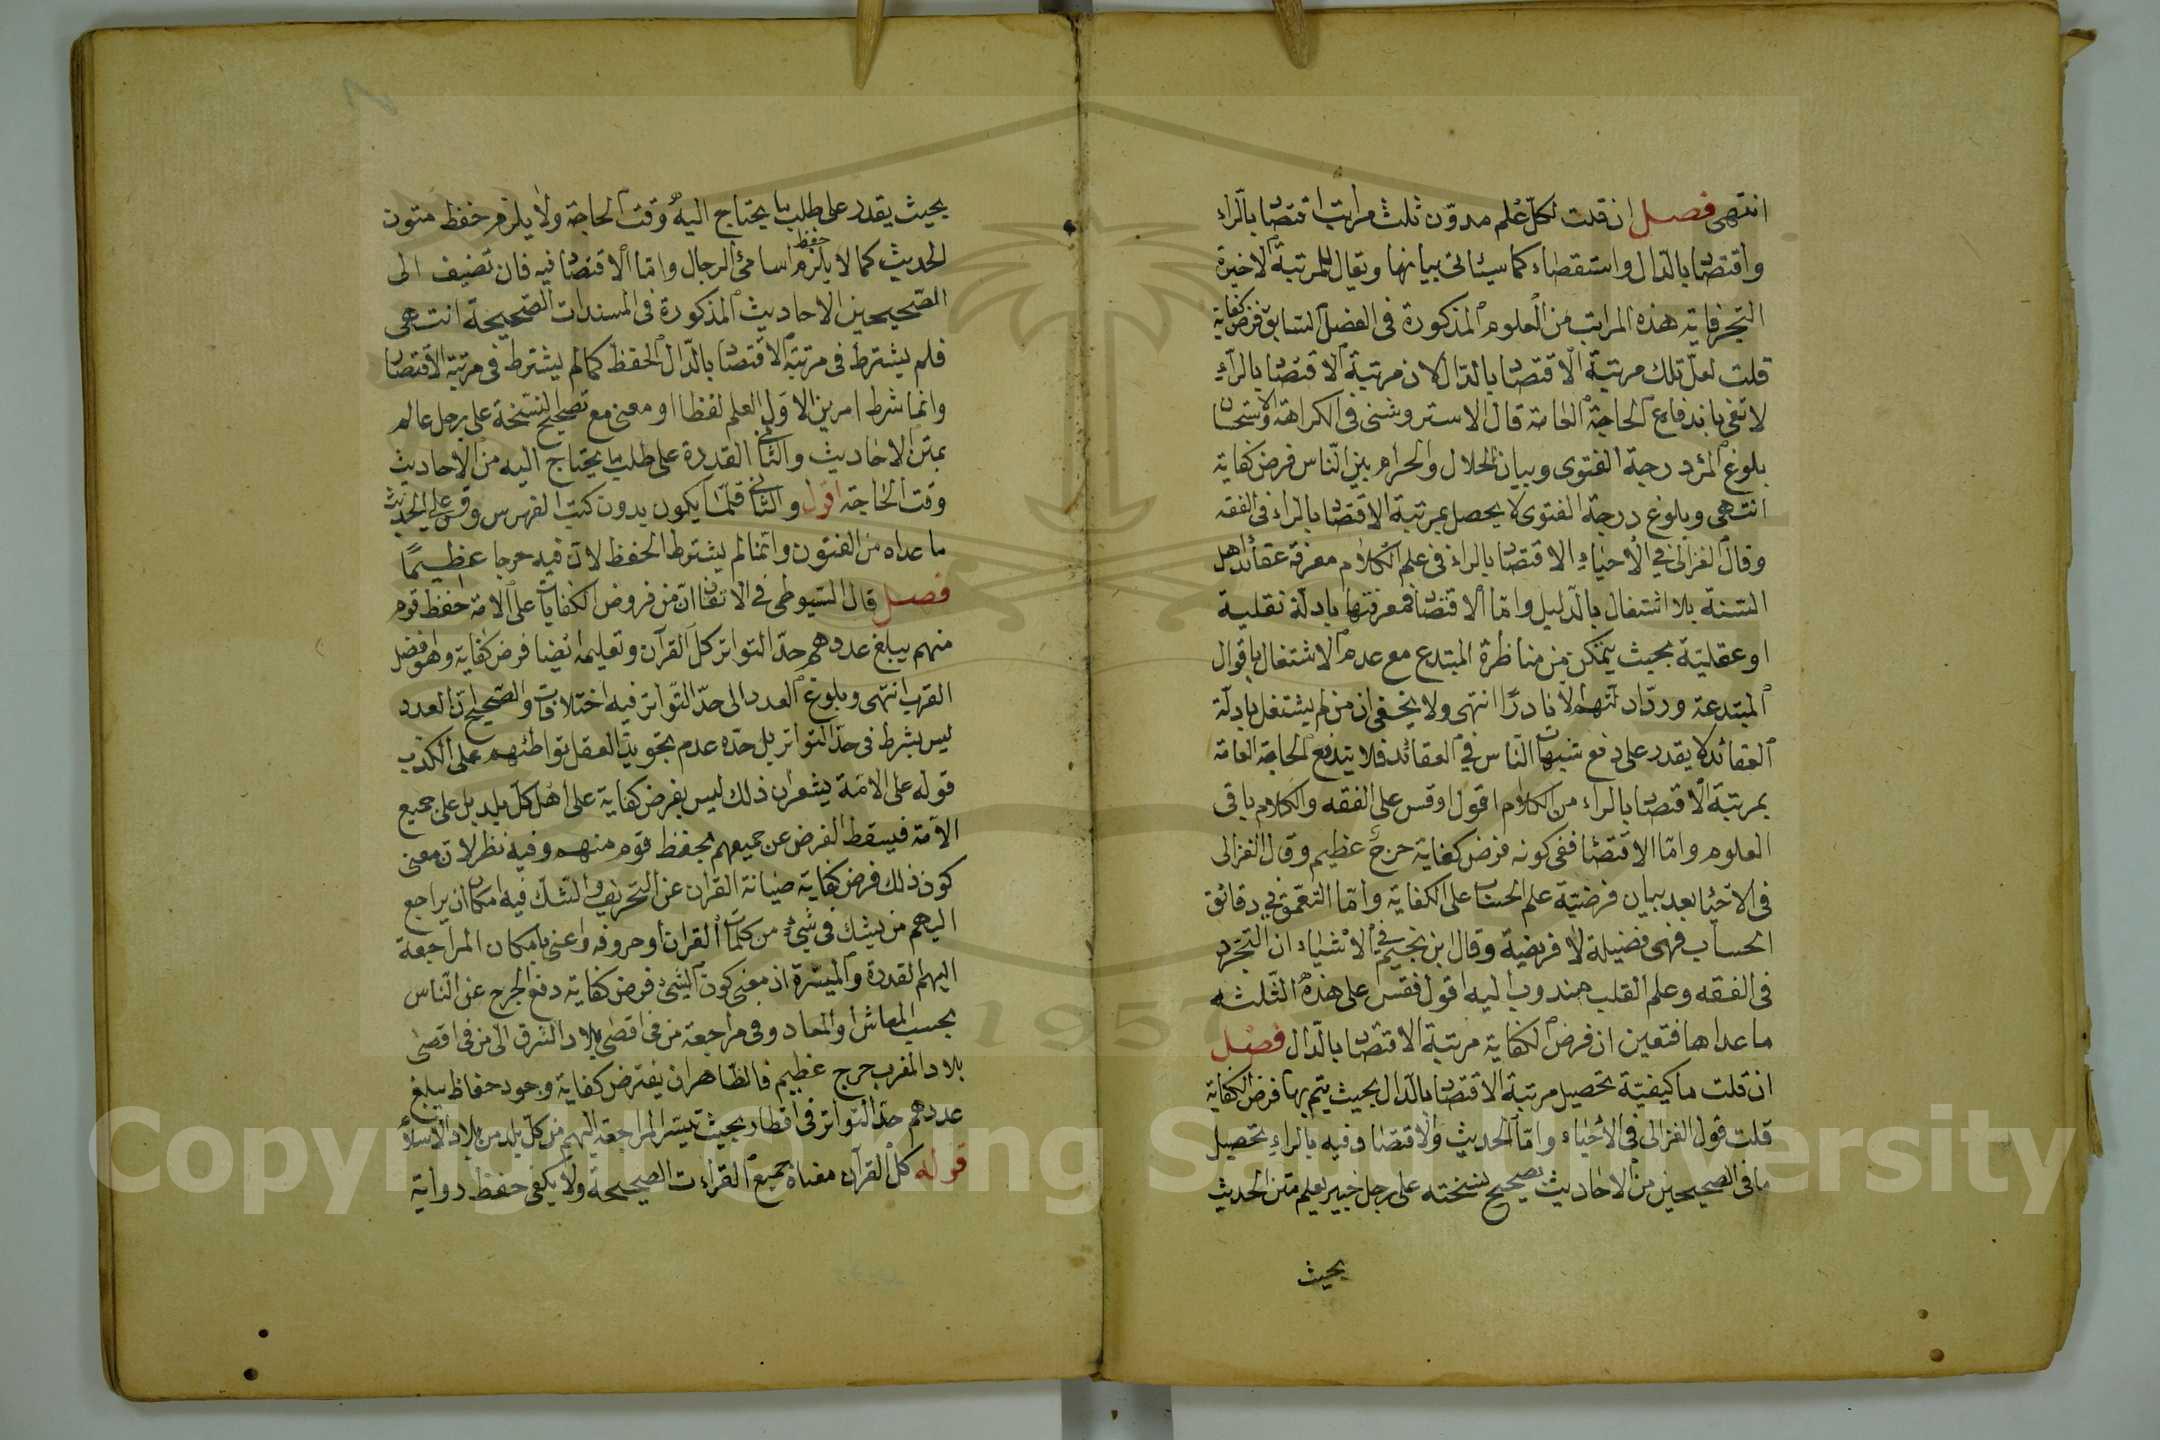 انتهى فصل ان قلت لكل علم مدوّن ثلث مراتب اقتصا بالراء
واقتصا بالدّال واستقصاء كما سيئاتى بيانها ويقال للمرتبة الاخيرة
التبحر فاية هذه المراتب من العلوم المذكورة فى الفصل السابق فرض كفاية
قلت لعل تلك مرتبة الاقتصا بالدال لان مرتبة الاقتصا بالراء
لا تفى باندفاع الحاجة العامة قال الاستروشنى فى الكراهة والاستحسا
بلوغ المرء درجة الفتوى وبيان الحلال والحرام بين الناس فرض كفاية
انتهى وبلوغ درجة الفتوى لا يحصل بمرتبة الاقتصا بالراء فى الفقه
وقال الغزالى فى الاحياء الاقتصا بالراء فى علم الكلام معرفة عقائد اهل
السّنة بلا اشتغال بالدليل وامّا الاقتصا فمعرفتها بادلة نقلية
او عقليّة بحيث يتمكن من مناظرة المبتدع مع عدم الاشتغال باقوال
المبتدعة وردّ ادلتهم الا نادرًا انتهى ولا يخفى ان من لم يشتغل بادلّة
العقائد لا يقدر على دفع شبهات النّاس فى العقائد فلا يندفع الحاجة العامة
بمرتبة الاقتصا بالراء من الكلام اقول وقس على الفقه والكلام باقى
العلوم وامّا الاقتصا ففى كونه فرض كفاية حرج عظيم وقال الغزالى
فى الاحيا بعد بيان فرضيّة علم الحساب على الكفاية وامّا التعمّق فى دقائق
الحساب فهى فضيلة لا فريضة وقال ابن نجيم فى الاشباه ان التبحّر
فى الفقه وعلم القلب مندوب اليه اقول فقس على هذه الثلثه
ما عداها فتعين ان فرض الكفاية مرتبة الاقتصا بالدّال فصل
ان قلت ما كيفيّة تحصيل مرتبة الاقتصا بالدال بحيث يتم بها فرض الكفاية
قلت قول الغزالى فى الاحياء وامّا الحديث والاقتصا فيه بالراء تحصيل
ما فى الصحيحين من الاحاديث بصحيح نسخته على رجل خبير بعلم متن الحديث
بحيث
بحيث يقدر على طلب ما يحتاج اليه وقت الحاجة ولا يلزم حفظ متون
الحديث كما لا يلزم حفظ اسامى الرجال وامّا الاقتصا فيه فان تضيف الى
الصّحيحين الاحاديث المذكورة فى المسندات الصّحيحة انتهى
فلم يشترط فى مرتبة الاقتصا بالدّال الحفظ كما لم يشترط فى مرتبة الاقتصا
وانما شرط امرين الاوّل العلم لفظا او معنى مع تصحيح النسخة على رجل عالم
بمتن الاحاديث والثانى القدرة على طلب ما يحتاج اليه من الاحاديث
وقت الحاجة اقول والثانى قلّما يكون بدون كتب الفهرس وقس على الحديث
ما عداه من الفنون وانّما لم يشترط الحفظ لان فيه حرجا عظيمًا
فصل قال السّيوطى فى الاتقان انّ من فروض الكفايات على الامة حفظ قوم
منهم يبلغ عددهم حدّ التواتر كل القرآن وتعليمه ايضا فرض كفاية وهو افضل
القرب انتهى وبلوغ العدد الى حدّ التّواتر فيه اختلافات والصّحيح ان العدد
ليس بشرط فى حدّ التواتر بل حدّه عدم تجويز العقل تواطئهم على الكذب
قوله على الامّة يشعر ان ذلك ليس بفرض كفاية على اهل كلّ بلد بل على جميع
الامّة فيسقط الفرض عن جميعهم بحفظ قوم منهم وفيه نظر لان معنى
كون ذلك فرض كفاية صيانة القرآن عن التحريف والتشك فيه امكان ان يراجع
اليهم من يشك فى شئ من كلمات القرآن أو حروفه واعنى بامكان المراجعة
اليهم القدرة والميسّرة اذ معنى كون الشئ فرض كفاية دفع الحرج عن الناس
بحسب المعاش او المعاد وفى مراجعة من فى اقصى بلاد الشرق الى من فى اقصى
بلاد المغرب حرج عظيم فالظّاهر ان يفترض كفاية وجود حفاظ يبلغ
عددهم حدّ التواتر فى اقطار بحيث تيسّر المراجعة اليهم من كلّ بلد من بلاد الاسلام
قوله كل القرآن معناه بجميع القراءت الصحيحة ولا يكفى حفظ رواية
1957
Copyright © King Saud University